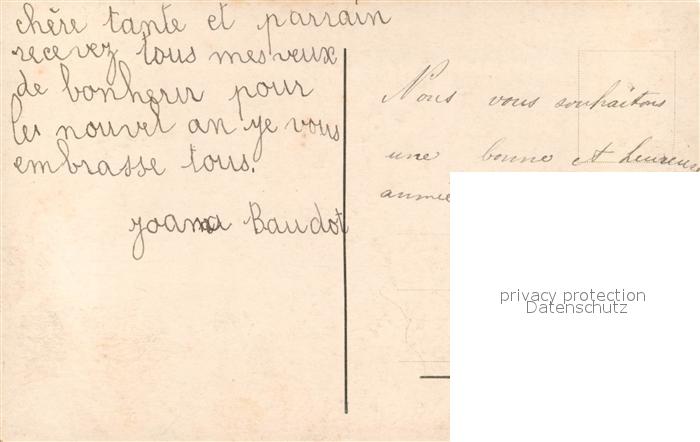 chère tante et parrain
recevez tous mes veux
de bonheur pour
les nouvel an je vous
embrasse tous.
Baudot
Nous vous souhaitons
une bonne et heureuse
année
privacy protection
Datenschutz